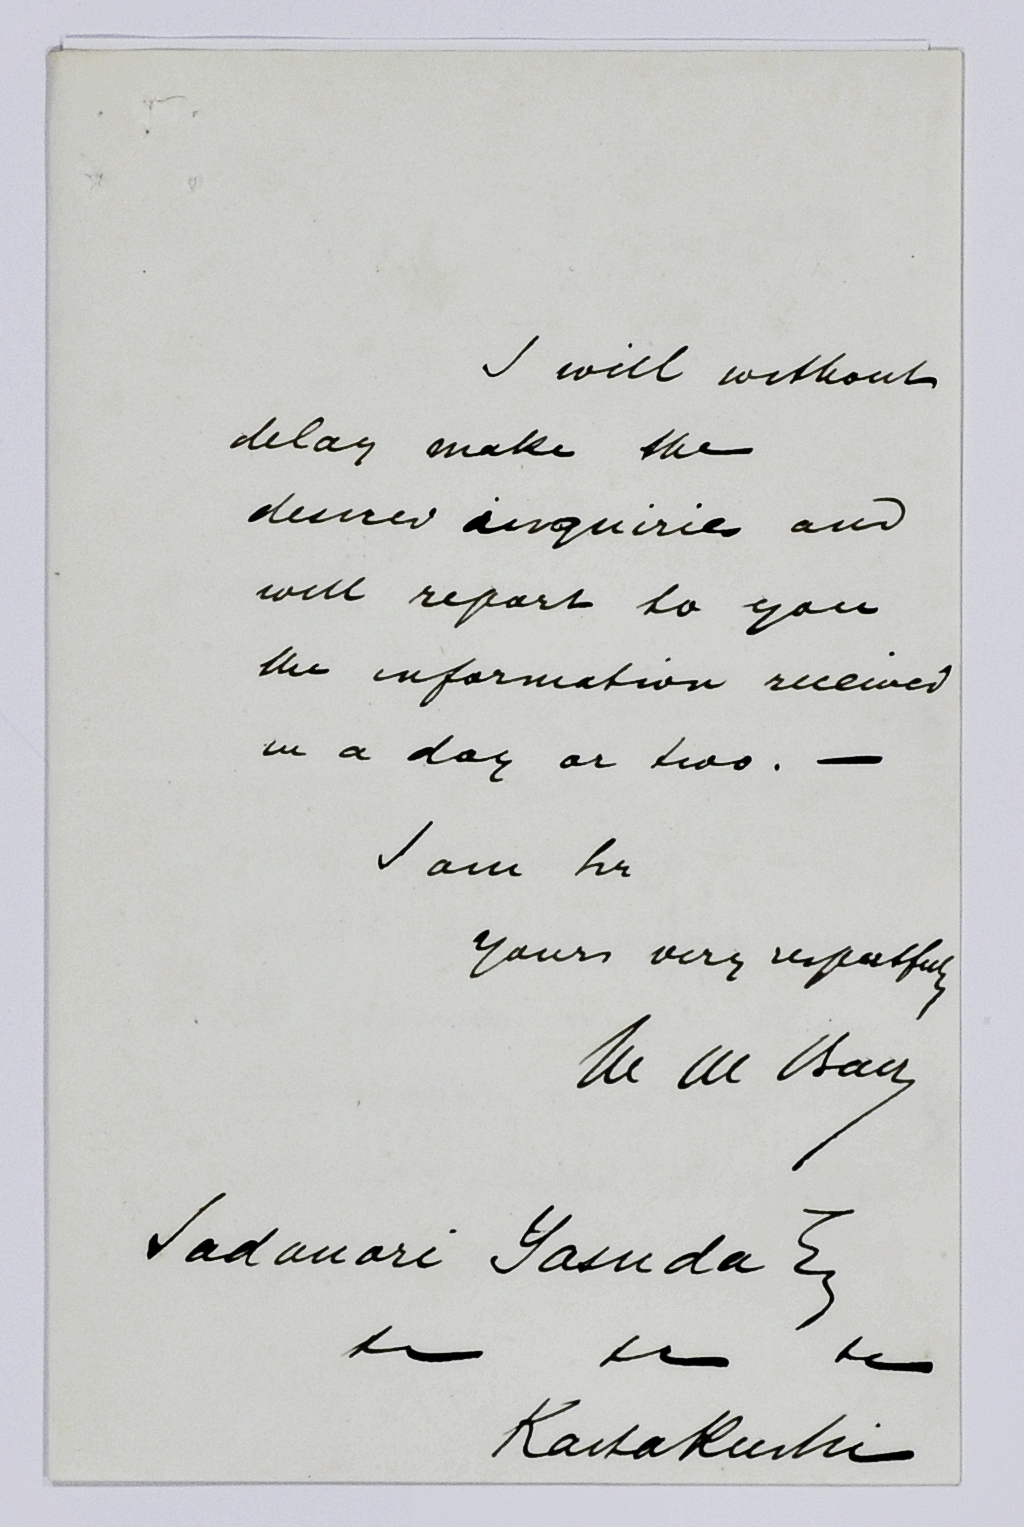 I will without
delay make the
desired inquiries and
will report to you
the information received
in a day or two. —
I am Sir
Yours very respectfully
M M Bair
Sadanori Yasuda Esq
&c &c &c
Kaitakushi